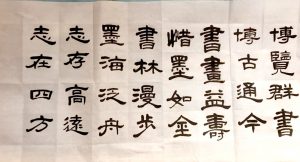 博覽群書
博古通今
書畫益壽
惜墨如金
書林漫步
墨海泛舟
志存高遠
志在四方